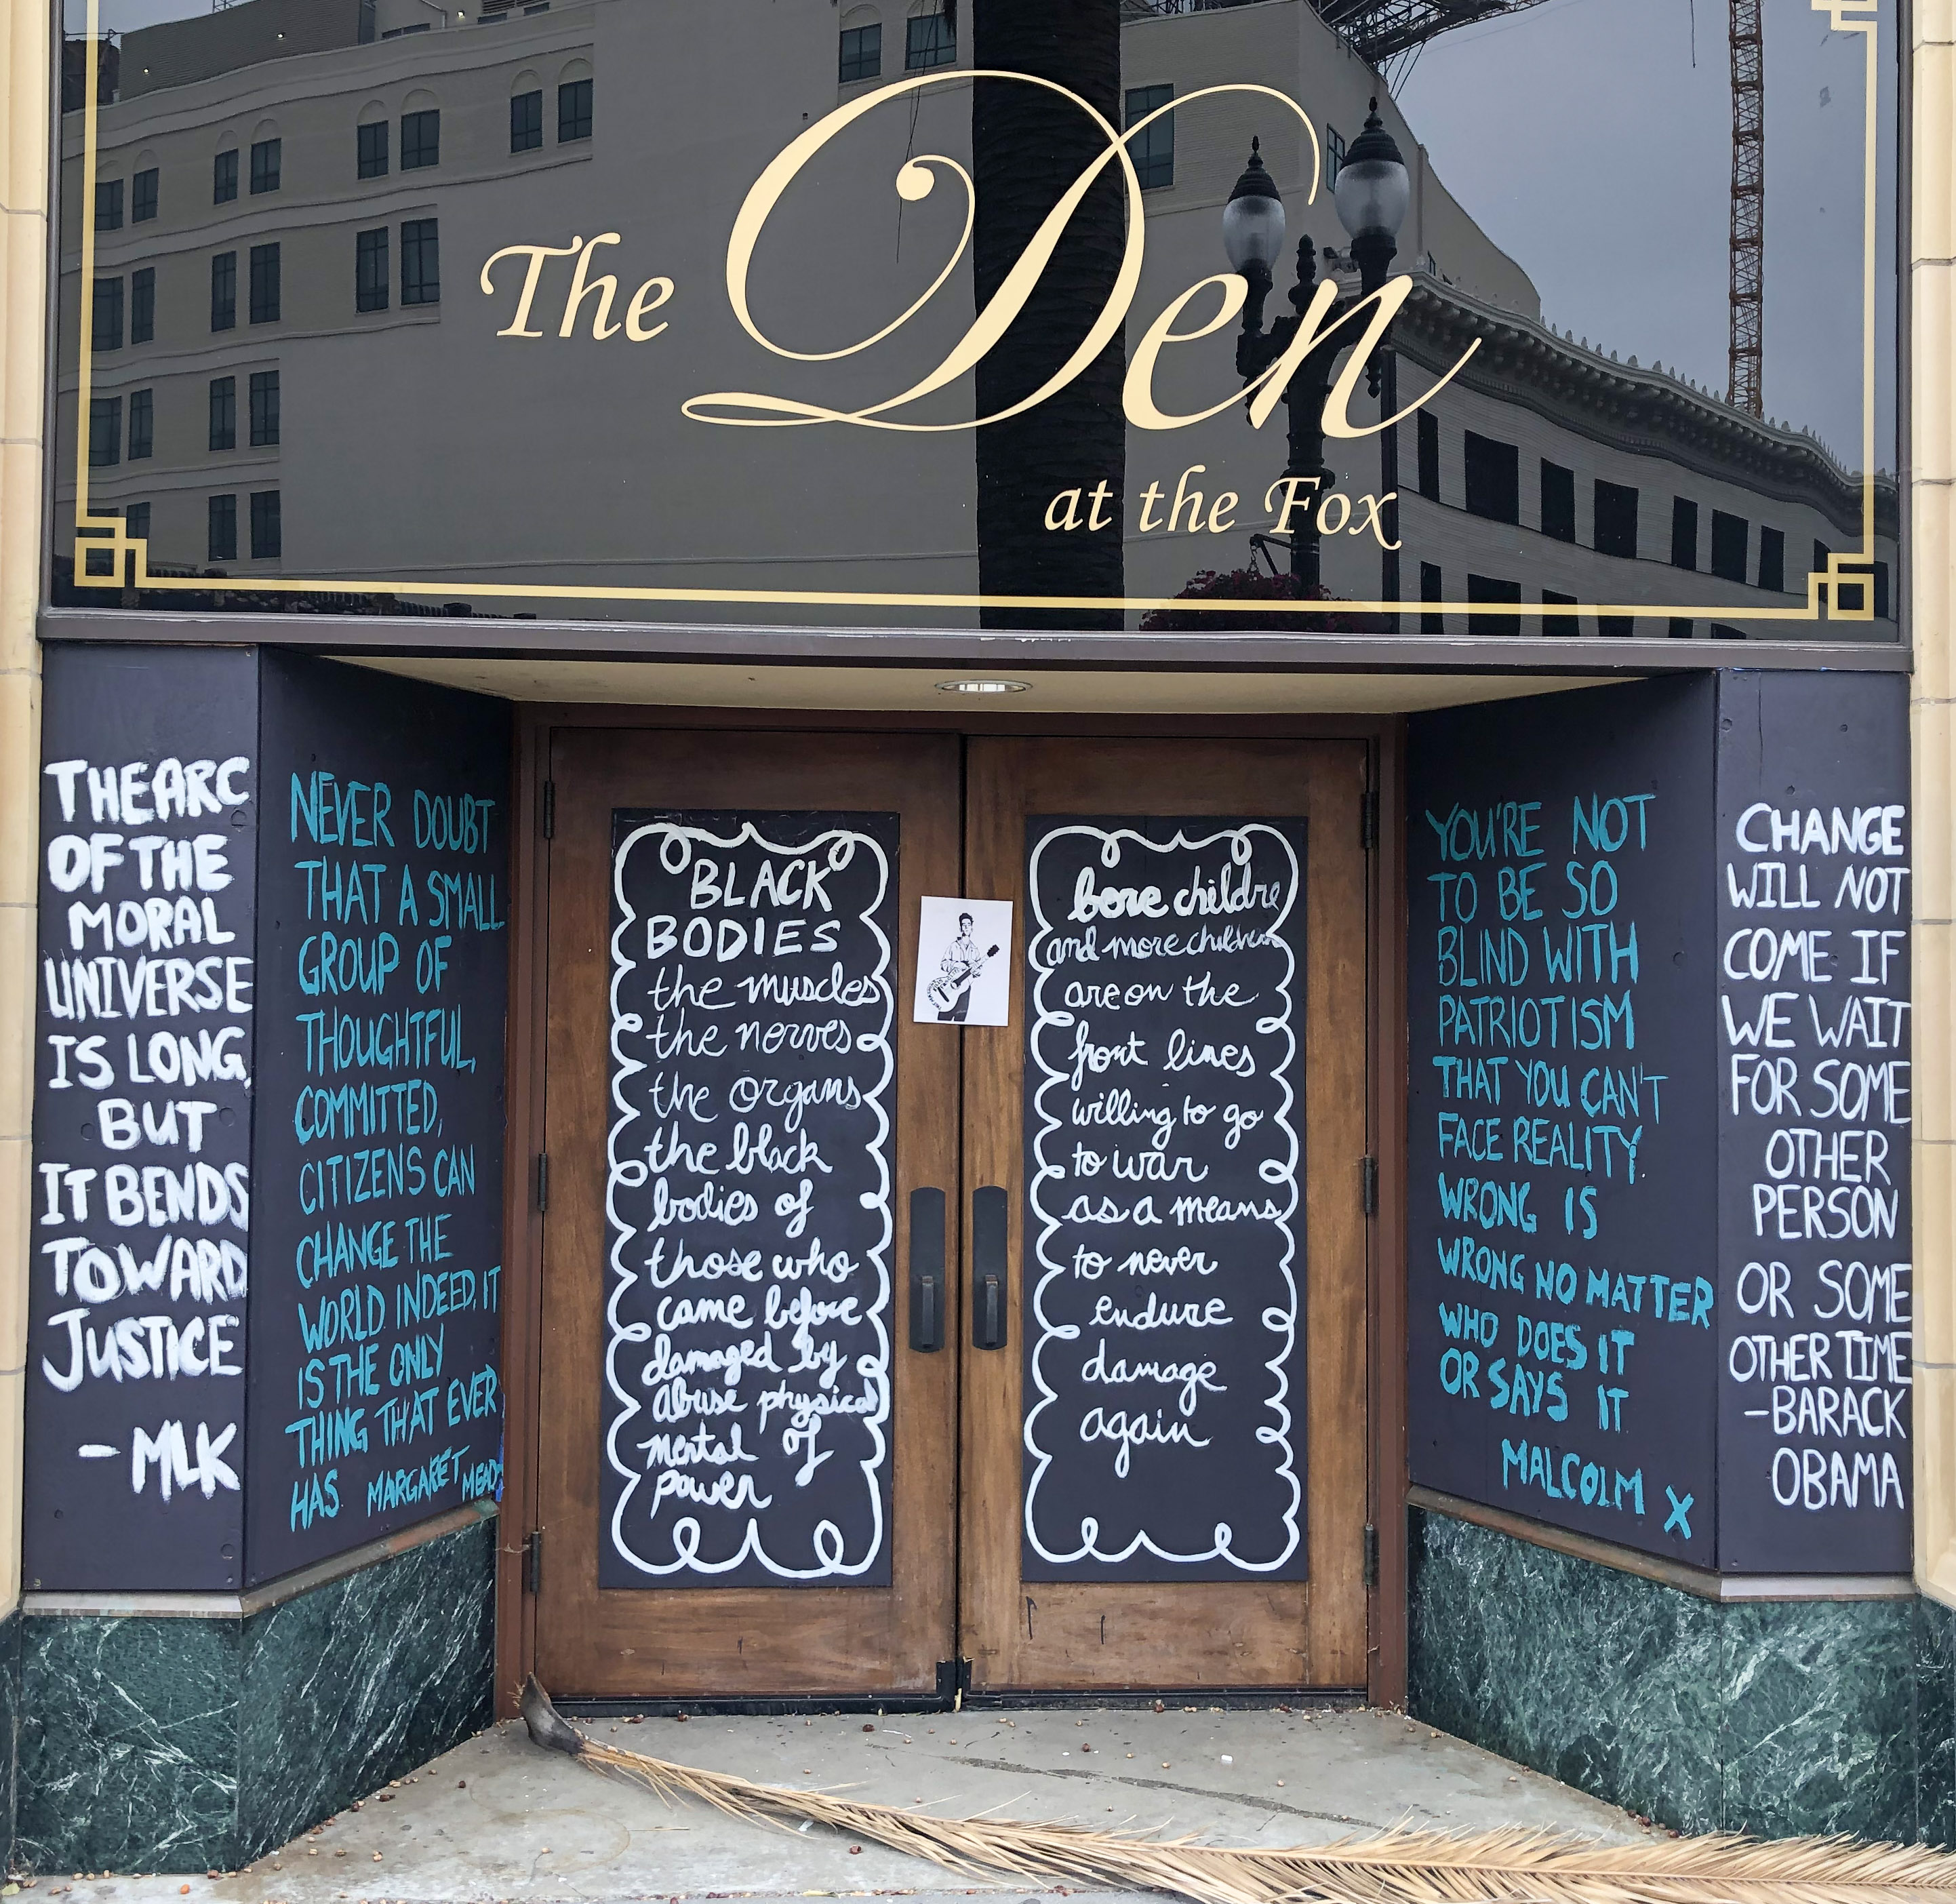 The Den
at the Fox
THE ARC
OF THE
MORAL
UNIVERSE
IS LONG,
BUT
IT BENDS
TOWARD
JUSTICE
- MLK
NEVER DOUBT
THAT A SMALL
GROUP OF
THOUGHTFUL,
COMMITTED,
CITIZENS CAN
CHANGE THE
WORLD INDEED, IT
IS THE ONLY
THING THAT EVER
HAS MARGARET MEAD
BLACK
BODIES
the muscles
the nerves
the organs
the black
bodies of
those who
came before
damaged by
abuse physical
mental of
power
bore childre
and more children
are on the
front lines
willing to go
to war
as a means
to never
endure
damage
again
YOU'RE NOT
TO BE SO
BLIND WITH
PATRIOTISM
THAT YOU CAN'T
FACE REALITY.
WRONG IS
WRONG NO MATTER
WHO DOES IT
OR SAYS IT
MALCOLM X
CHANGE
WILL NOT
COME IF
WE WAIT
FOR SOME
OTHER
PERSON
OR SOME
OTHER TIME
-BARACK
OBAMA